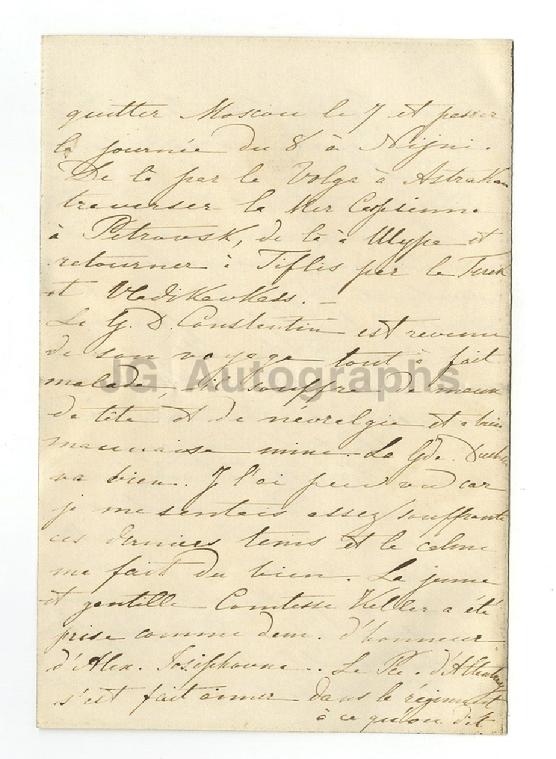 quitter Moscou le 7 et passer
la journée du 8 à Nijni.
De là par le Volga à Astrakan
traverser la Mer Caspienne
à Petrovsk, de là à
retourner à Tiflis par le Terek
et Vladikavkass. —
Le G. D. Constantin est revenu
de son voyage tout à fait
malade, il souffre de maux
de tête et de névralgie et a bien
mauvaise mine. La Gde. Duch.
va bien. Je l'ai peu vu car
je me sentais assez souffrante
ces derniers tems et le calme
me fait du bien. La jeune
et gentille Comtesse Keller a été
prise comme dem. d'honneur
d'Alex. Joséphovna.. Le Pce. d'Altenbourg
s'est fait aimer dans le régiment
à ce qu'on dit
JG Autographs